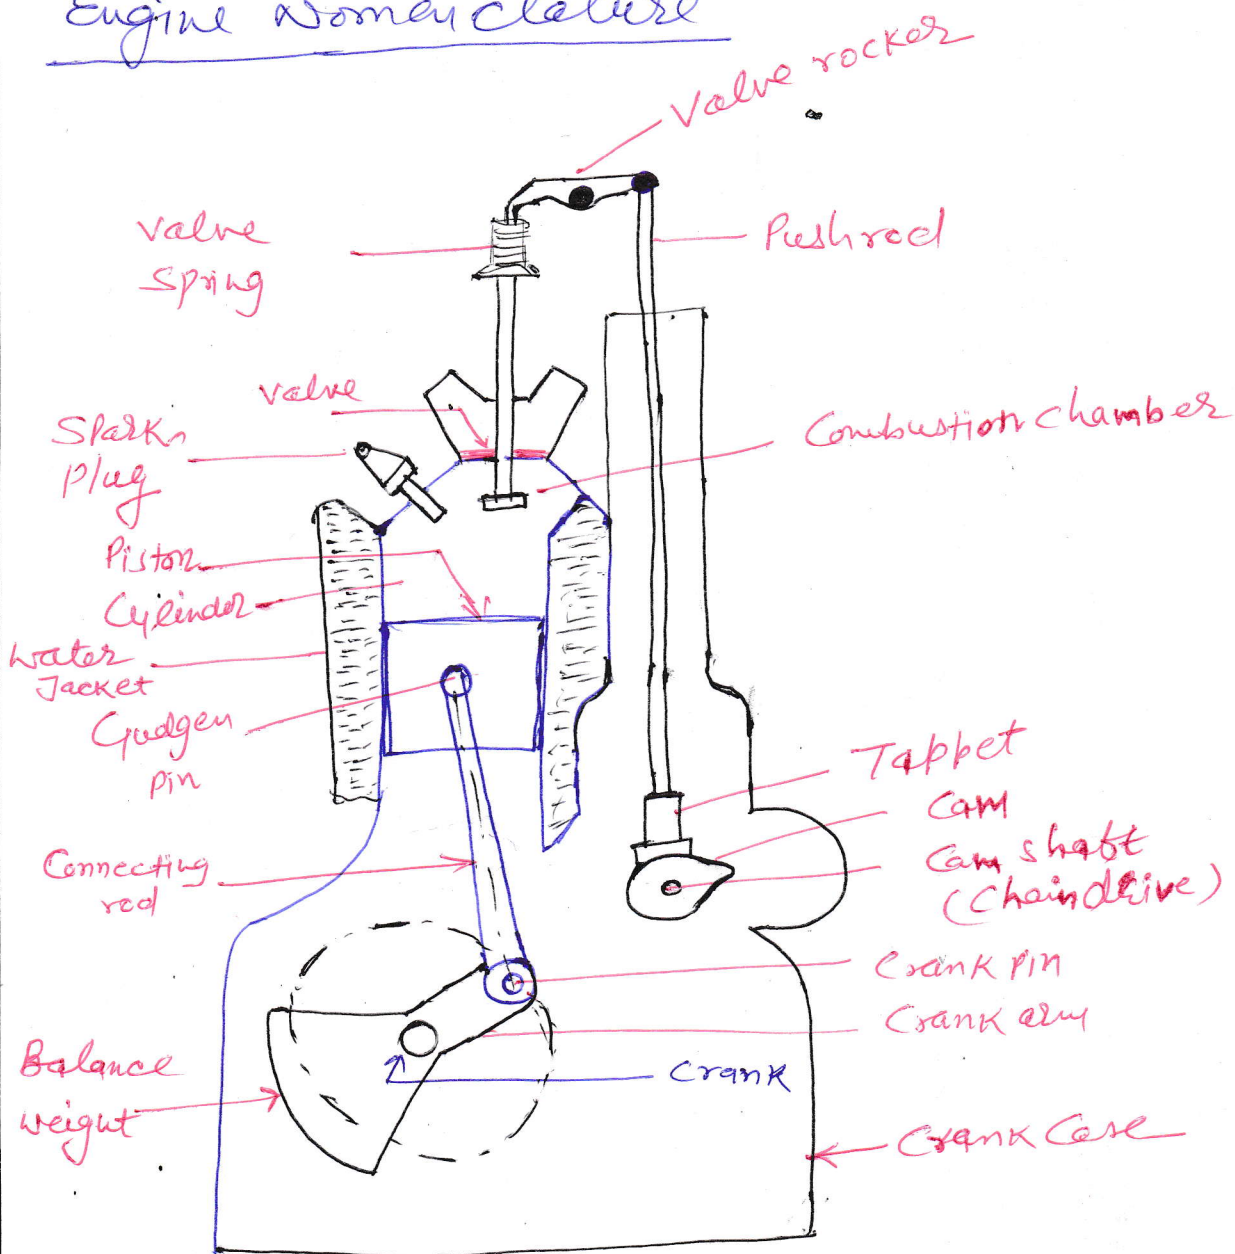 Engine Nomenclature
Valve rocker
Valve
Spring
Pushrod
Valve
Spark
Plug
Combustion chamber
Piston
Cylinder
Water
Jacket
Gudgen
pin
Tappet
Cam
Cam shaft
(Chain drive)
Connecting
rod
Crank pin
Crank arm
Crank
Balance
weight
Crank Case